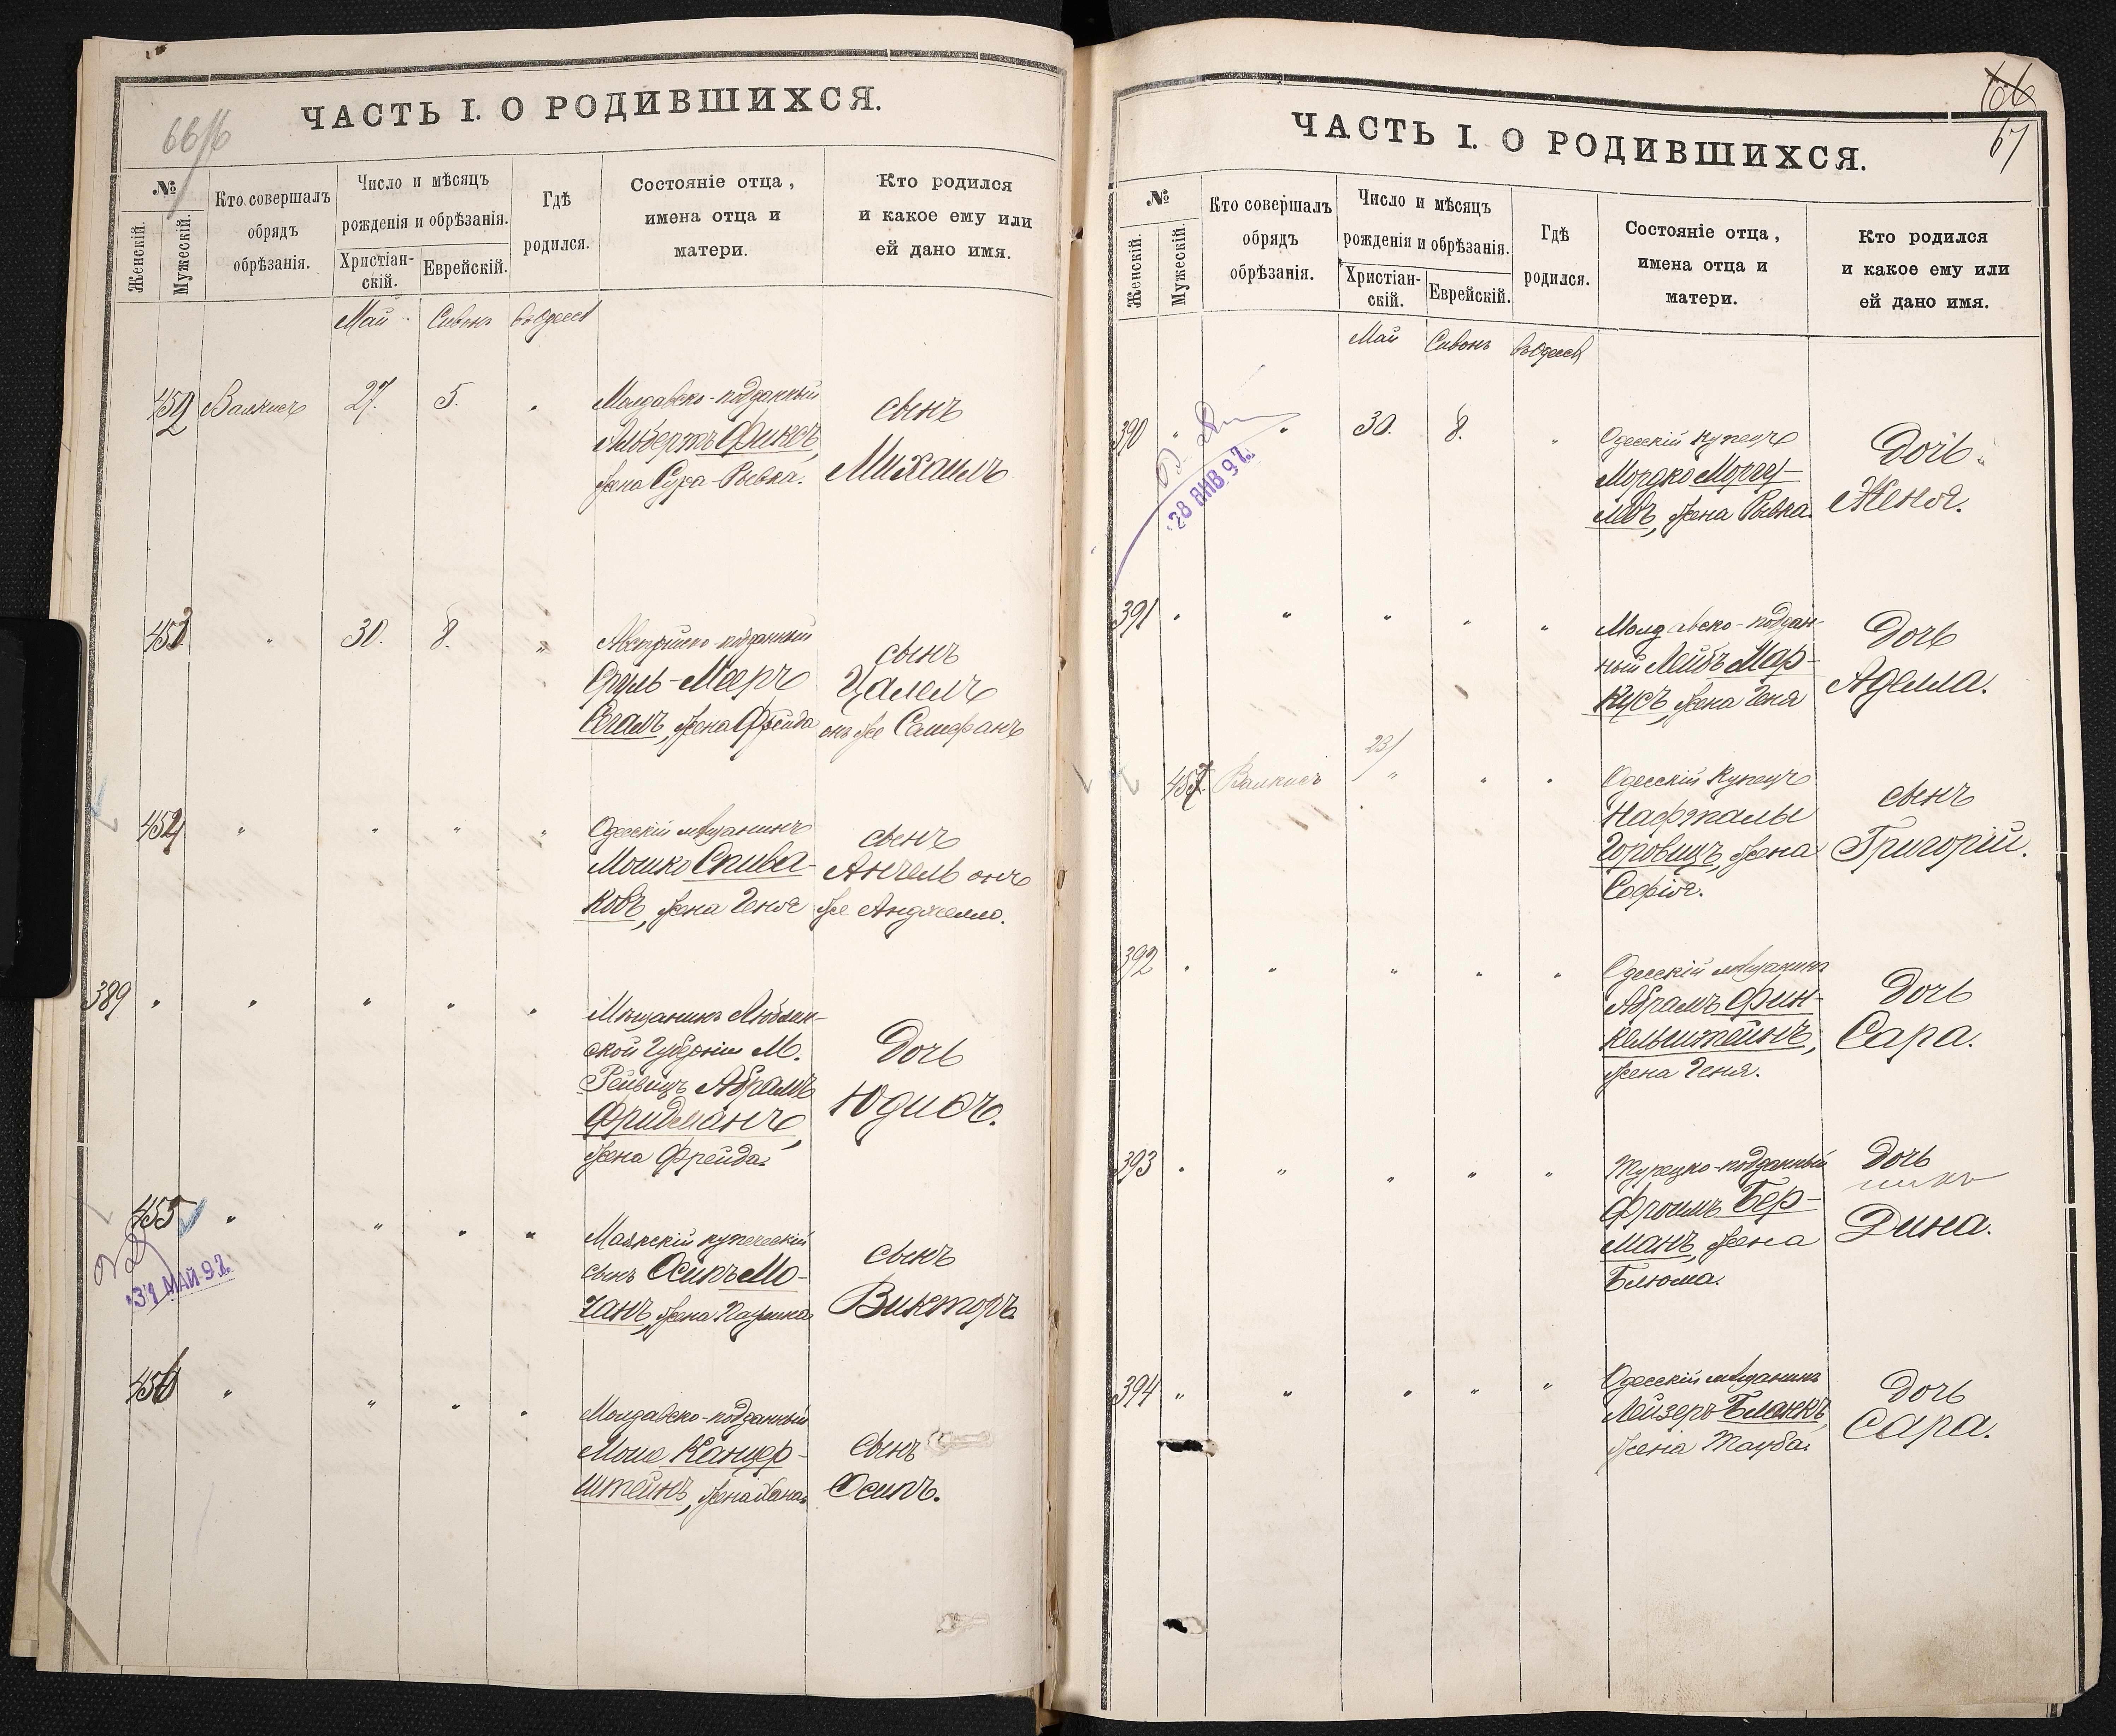 66 об
ЧАСТЬ I. О РОДИВШИХСЯ.
№
Женскій.
Мужескій.
Кто совершалъ
обрядъ
обрѣзанія.
Число и мѣсяцъ
рожденія и обрѣзанія.
Христіан-
скій.
Еврейскій.
Гдѣ
родился.
Состояніе отца,
имена отца и
матери.
Кто родился
и какое ему или
ей дано имя.
Май Сивонъ въ Одессѣ
452 Валкисъ 27. 5. „ Молдавско-подданный
Альбертъ Финсъ,
жена Сура-Рывка.
сынъ
Михаилъ
453 „ 30. 8. „ Австрійско-подданный
Сруль-Мееръ
Сегалъ, жена Фрейда
сынъ
Цалелъ
онъ же
454 „ „ „ „ Одесскій мѣщанинъ
Мошко Спива-
ковъ, жена Геня
сынъ
Анчель онъ
же Анджелло.
389 „ „ „ „ „ Мѣщанинъ Люблин-
ской Губерніи М.
Абрамъ
Фридманъ,
жена Фрейда.
Дочь
Юдисъ.
455 „ „ „ „ Маякскій купеческій
сынъ Осипъ Мо-
чанъ, жена
сынъ
Викторъ.
31 МАЙ 92
456 „ „ „ „ Молдавско-подданный
Моше Канцер-
штейнъ, жена Хана.
сынъ
Осипъ.
66
67
ЧАСТЬ I. О РОДИВШИХСЯ.
№
Женскій.
Мужескій.
Кто совершалъ
обрядъ
обрѣзанія.
Число и мѣсяцъ
рожденія и обрѣзанія.
Христіан-
скій.
Еврейскій.
Гдѣ
родился.
Состояніе отца,
имена отца и
матери.
Кто родился
и какое ему или
ей дано имя.
Май Сивонъ въ Одессѣ
390 „ „ 30. 8. „ Одесскій купецъ
Мордко
жена Рывка.
Дочь
Женя.
28 ЯНВ 92
391 „ „ „ „ „ Молдавско-поддан-
ный Лейбъ Мар-
кусъ, жена Геня
Дочь
Аделла.
23/
457 Валкисъ „ „ „ Одесскій Купецъ
Нафталы
Горовицъ, жена
Софія.
сынъ
Григорій.
392 „ „ „ „ „ Одесскій мѣщанинъ
Абрамъ Фин-
кельштейнъ,
жена Геня.
Дочь
Сара.
393 „ „ „ „ „ Турецко-подданный
Фроимъ Бер-
манъ, жена
Блюма.
Дочь
Дина.
394 „ „ „ „ „ Одесскій мѣщанинъ
Лейзеръ Бланкъ,
жена Тауба.
Дочь
Сара.